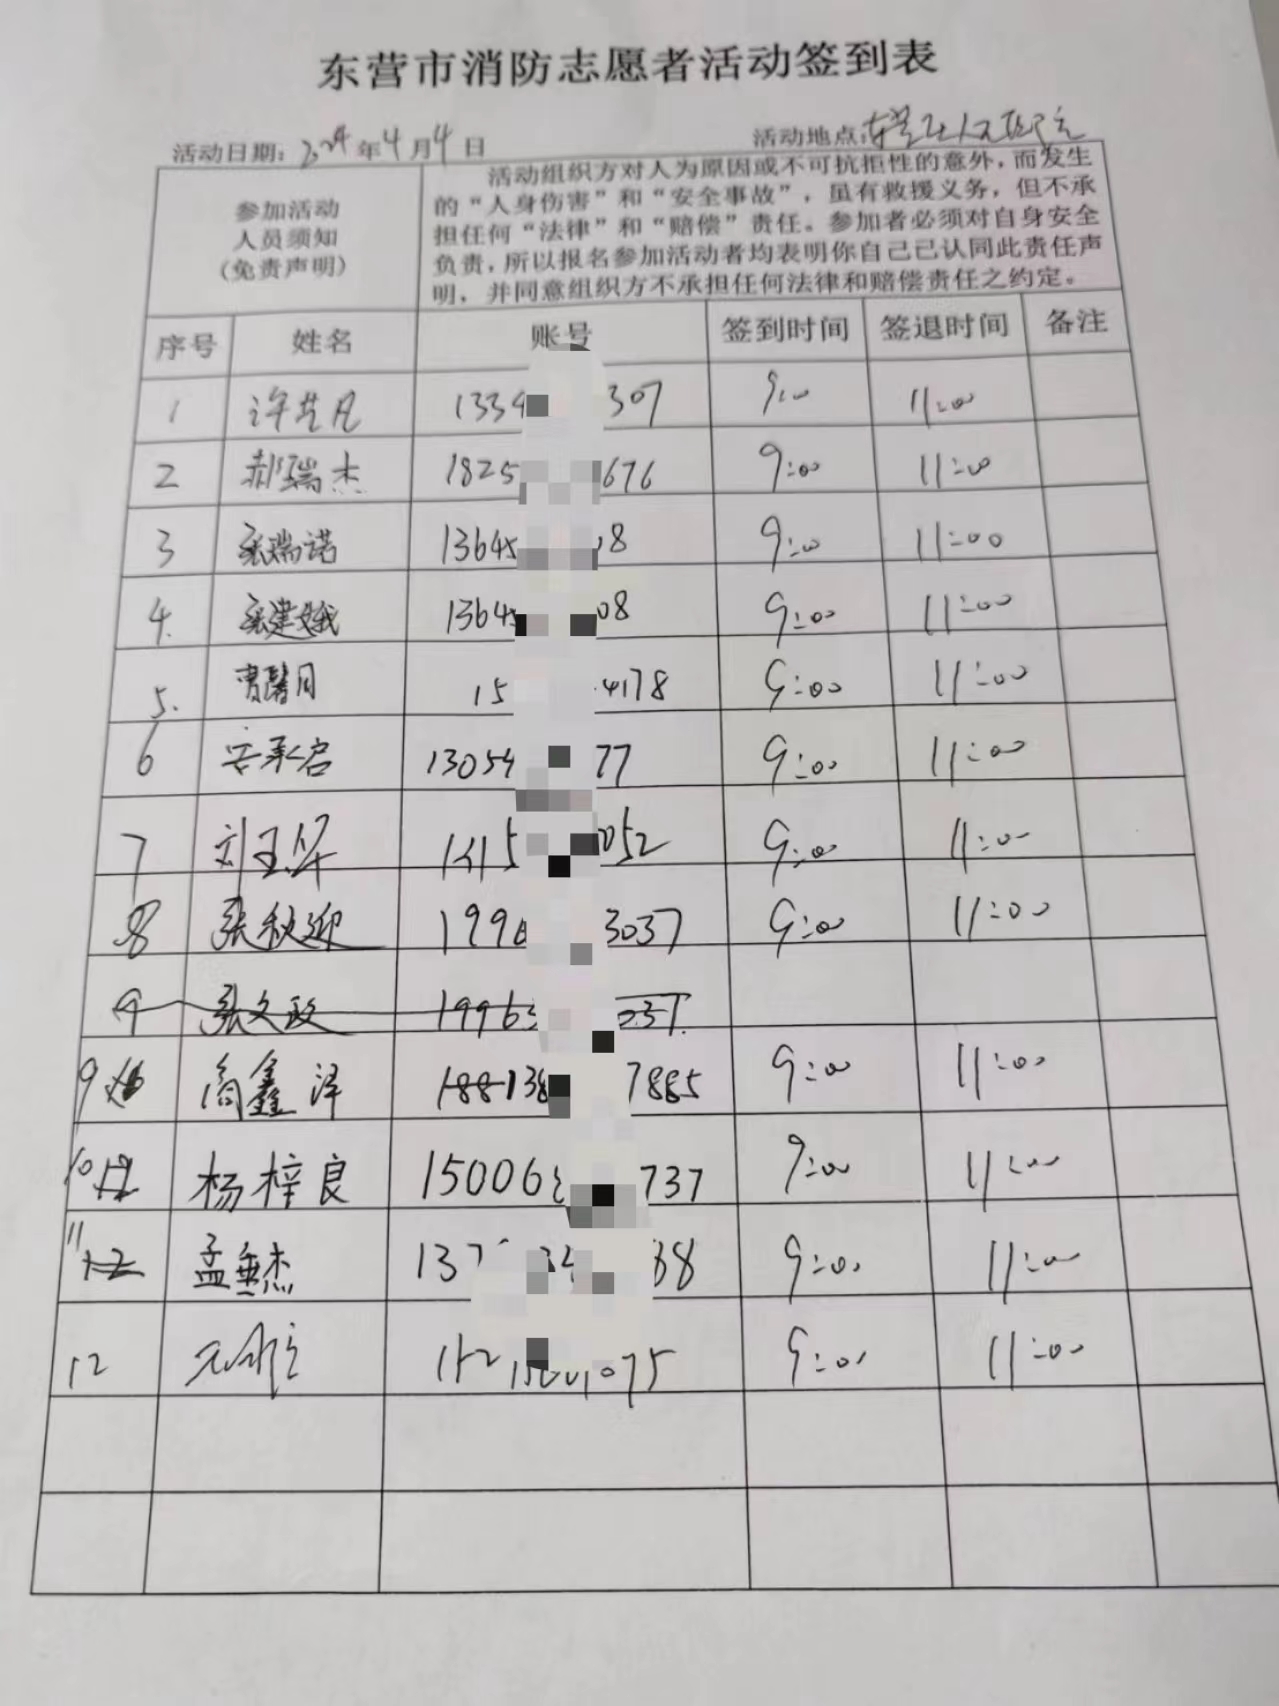 东营市消防志愿者活动签到表
活动日期：2024年4月4日 活动地点：东营区人民医院
参加活动
人员须知
（免责声明）
活动组织方对人为原因或不可抗拒性的意外，而发生
的“人身伤害”和“安全事故”，虽有救援义务，但不承
担任何“法律”和“赔偿”责任。参加者必须对自身安全
负责，所以报名参加活动者均表明你自己已认同此责任声
明，并同意组织方不承担任何法律和赔偿责任之约定。
序号 姓名 账号 签到时间 签退时间 备注
1 许艺凡 1334 307 9:00 11:00
2 郝瑞杰 1825 676 9:00 11:00
3 张瑞诺 13645 08 9:00 11:00
4. 张建娥 1364 08 9:00 11:00
5. 曹馨月 15 4178 9:00 11:00
6 安承启 13054 77 9:00 11:00
7 刘玉华 052 9:00 11:00
8 张秋迎 199 3037 9:00 11:00
9 张文政 1996 037
9 阎鑫泽 188138 7885 9:00 11:00
10 杨梓良 15006 737 9:00 11:00
11 孟垂杰 137 68 9:00 11:00
12 075 9:00 11:00